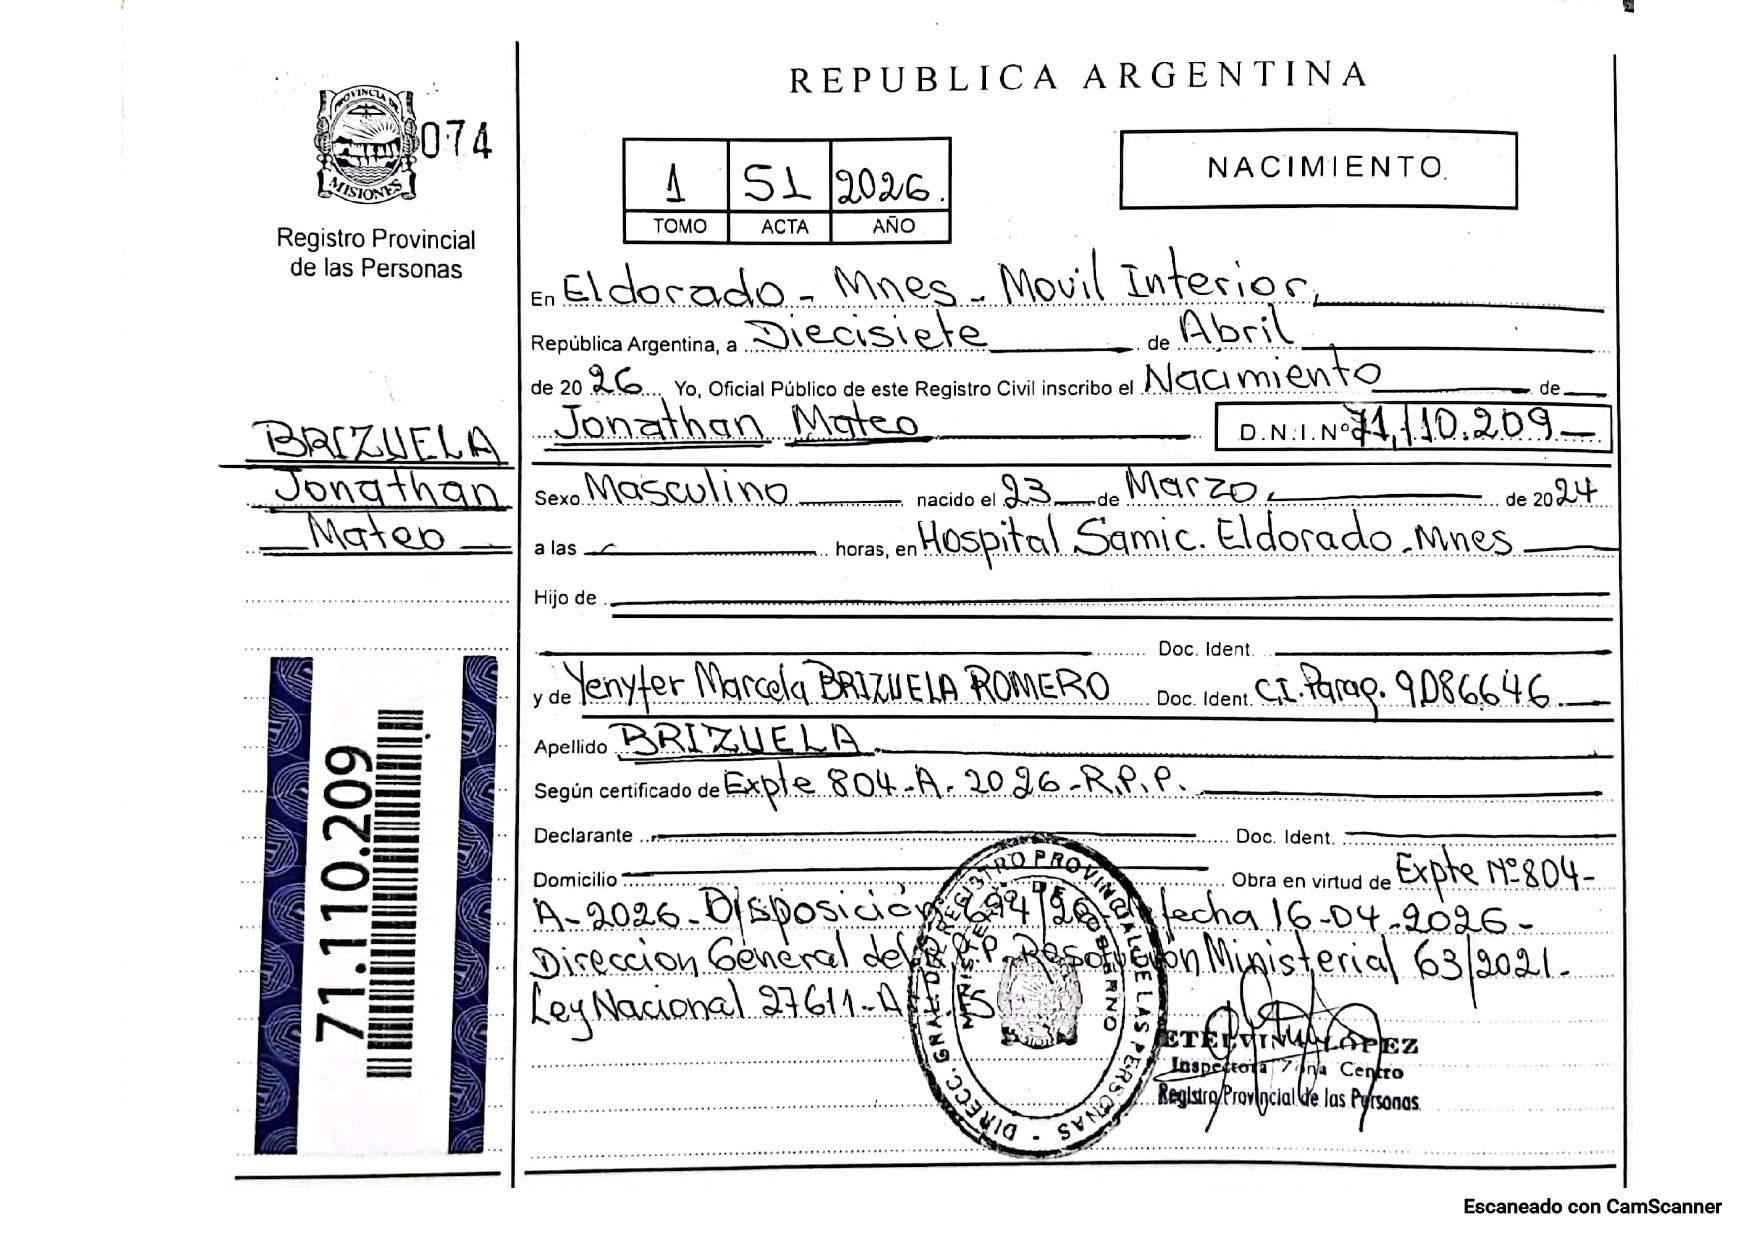 REPUBLICA ARGENTINA
PROVINCIA DE
MISIONES
074
Registro Provincial
de las Personas
1 51 2026.
TOMO ACTA AÑO
NACIMIENTO.
En Eldorado - Mnes - Movil Interior.
República Argentina, a Diecisiete de Abril
de 2026 Yo, Oficial Público de este Registro Civil inscribo el Nacimiento de
Jonathan Mateo D.N.I.Nº 71.110.209
BRIZUELA
Jonathan
Mateo
Sexo Masculino nacido el 23 de Marzo de 2024
a las horas, en Hospital Samic. Eldorado. Mnes
Hijo de
Doc. Ident.
y de Yenyfer Marcela BRIZUELA ROMERO Doc. Ident. C.I. Parag. 9086646
Apellido BRIZUELA
Según certificado de Expte 804-A-2026-R.P.P.
Declarante Doc. Ident.
Domicilio Obra en virtud de Expte Nº 804-
A-2026-Disposición 694/26 fecha 16-04-2026-
Direccion General del R.P.P. Resolución Ministerial 63/2021-
Ley Nacional 27611-A
71.110.209
DIRECC. GRAL. DEL REGISTRO PROVINCIAL DE LAS PERSONAS
MINISTERIO DE GOBIERNO
ETELVINA LOPEZ
Inspectora Zona Centro
Registro Provincial de las Personas
Escaneado con CamScanner